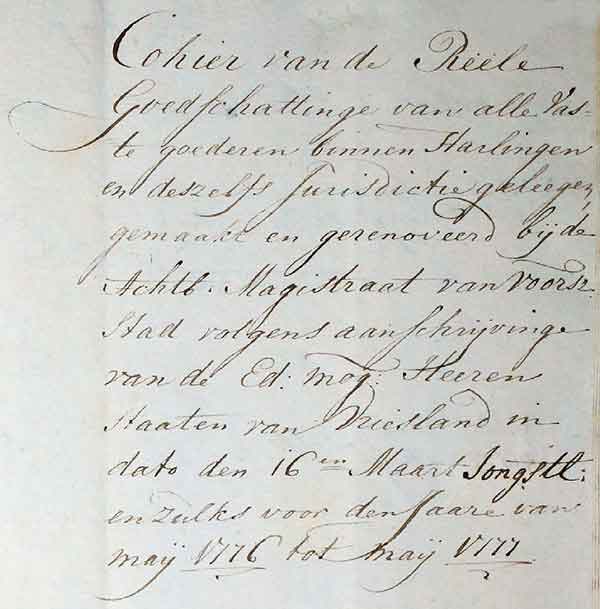 Cohier van de Reële
Goedschattinge van alle Vas-
te goederen binnen Harlingen
en deszelfs Jurisdictie geleegen,
gemaakt en gerenoveerd bij de
Achtb. Magistraat van Voorsz
Stad volgens aanschrijvinge
van de Ed: mog: Heeren
Staaten van Vriesland in
dato den 16en Maart Jongstl:
en zulks voor den Jaare van
maij 1776 tot maij 1777